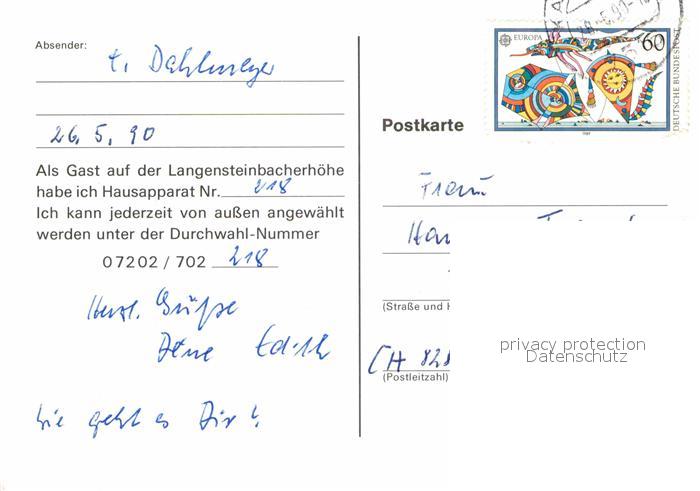 Absender:
E. Dahlmeyer
26.5.90
Als Gast auf der Langensteinbacherhöhe
habe ich Hausapparat Nr. 218
Ich kann jederzeit von außen angewählt
werden unter der Durchwahl-Nummer
07202/702 218
Herzl. Grüße
Deine Edith
Wie geht es Dir?
EUROPA
60
DEUTSCHE BUNDESPOST
1989
Postkarte
Frau
(Straße und H
CH 828
(Postleitzahl)
privacy protection
Datenschutz